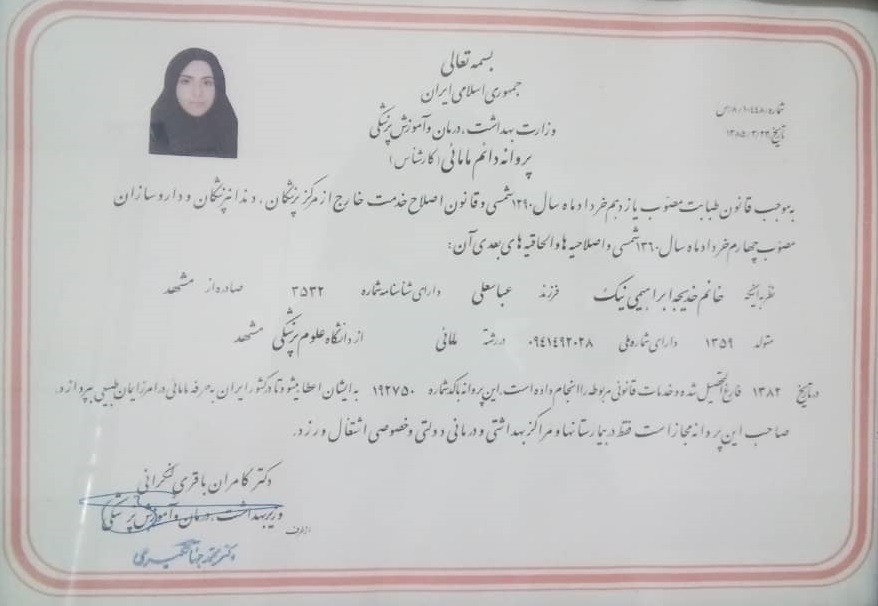 بسمه تعالی
جمهوری اسلامی ایران
وزارت بهداشت، درمان و آموزش پزشکی
پروانه دائم مامائی (کارشناس)
شماره: ۸/۱۰۴۴۸۰/س
تاریخ: ۱۳۸۵/۳/۲۲
به موجب قانون طبابت مصوب یازدهم خرداد ماه سال ۱۲۹۰ شمسی و قانون اصلاح خدمت خارج از مرکز پزشکان، دندانپزشکان و داروسازان
مصوب چهارم خرداد ماه سال ۱۳۶۰ شمسی و اصلاحیه ها و الحاقیه های بعدی آن:
نظر به اینکه خانم خدیجه ابراهیمی نیک فرزند عباسعلی دارای شناسنامه شماره ۳۵۳۲ صادره از مشهد
متولد ۱۳۵۹ دارای شماره ملی ۰۹۴۱۴۹۲۰۲۸ در رشته مامائی از دانشگاه علوم پزشکی مشهد
در تاریخ ۱۳۸۲ فارغ التحصیل شده و خدمات قانونی مربوطه را انجام داده است، این پروانه با کد شماره ۱۹۲۷۵۰ به ایشان اعطا میشود تا در کشور ایران به حرفه مامائی در امر زایمان طبیعی بپردازد.
صاحب این پروانه مجاز است فقط در بیمارستانها و مراکز بهداشتی و درمانی دولتی و خصوصی اشتغال ورزد.
دکتر کامران باقری لنکرانی
وزیر بهداشت، درمان و آموزش پزشکی
از طرف